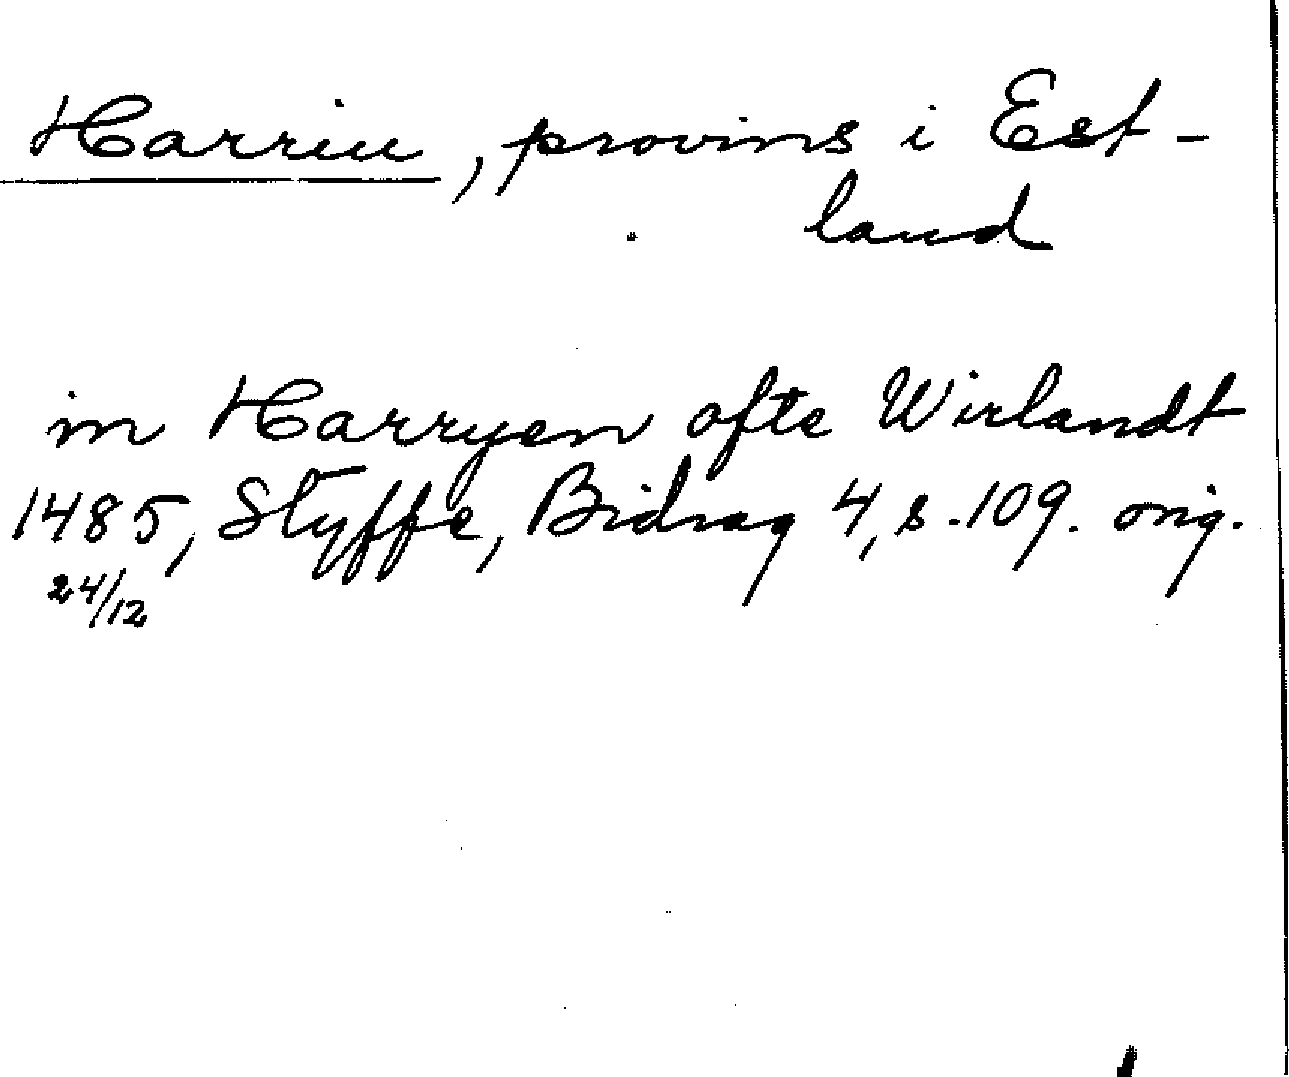 Harriu, provins i Est-
land
in Harryen ofte Wirlandt
1485, Styffe, Bidrag 4, s. 109. orig.
24/12